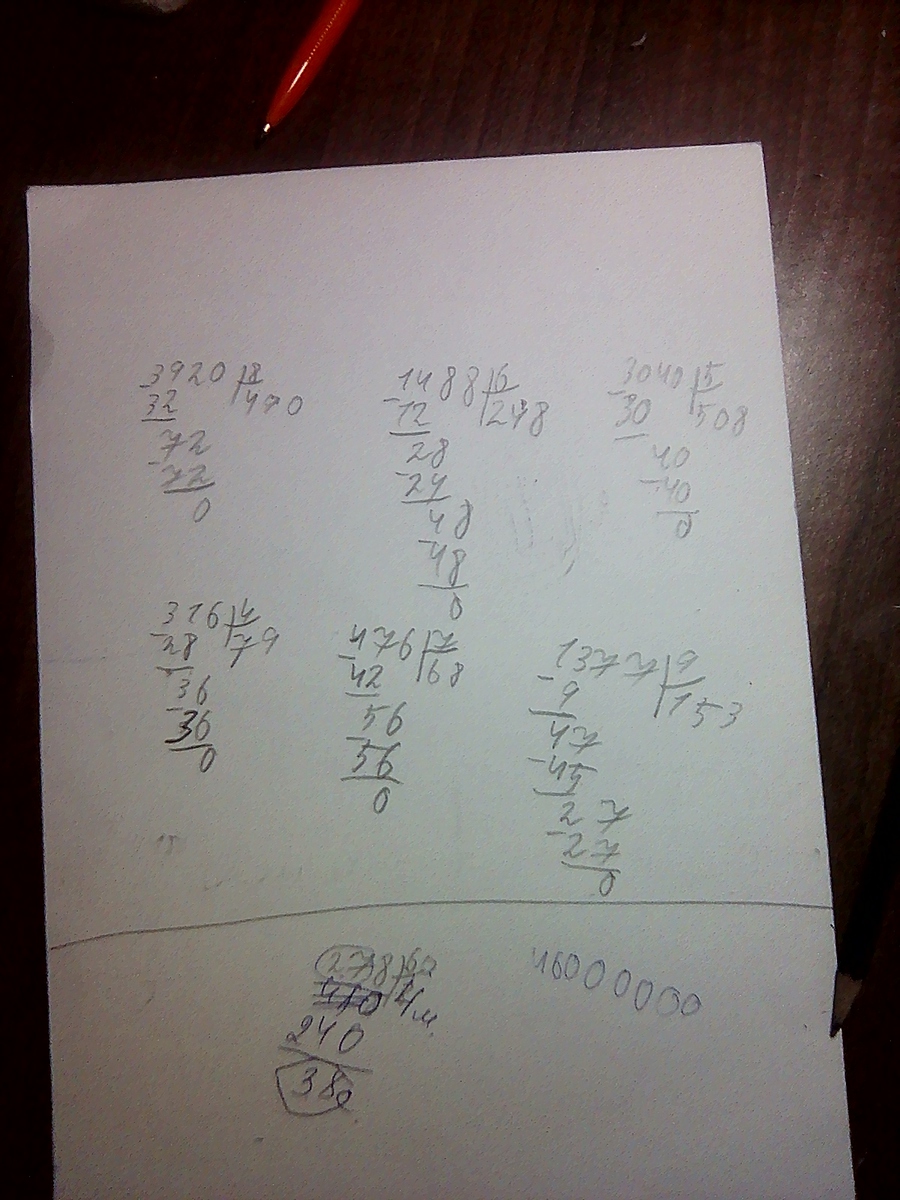 3920 8
32 490
72
72
0
1488 6
12 248
28
24
48
48
0
3040 5
30 508
40
40
0
316 4
28 79
36
36
0
476 7
42 68
56
56
0
1377 9
9 153
47
45
27
27
0
278 60
4м.
240
38
46000000